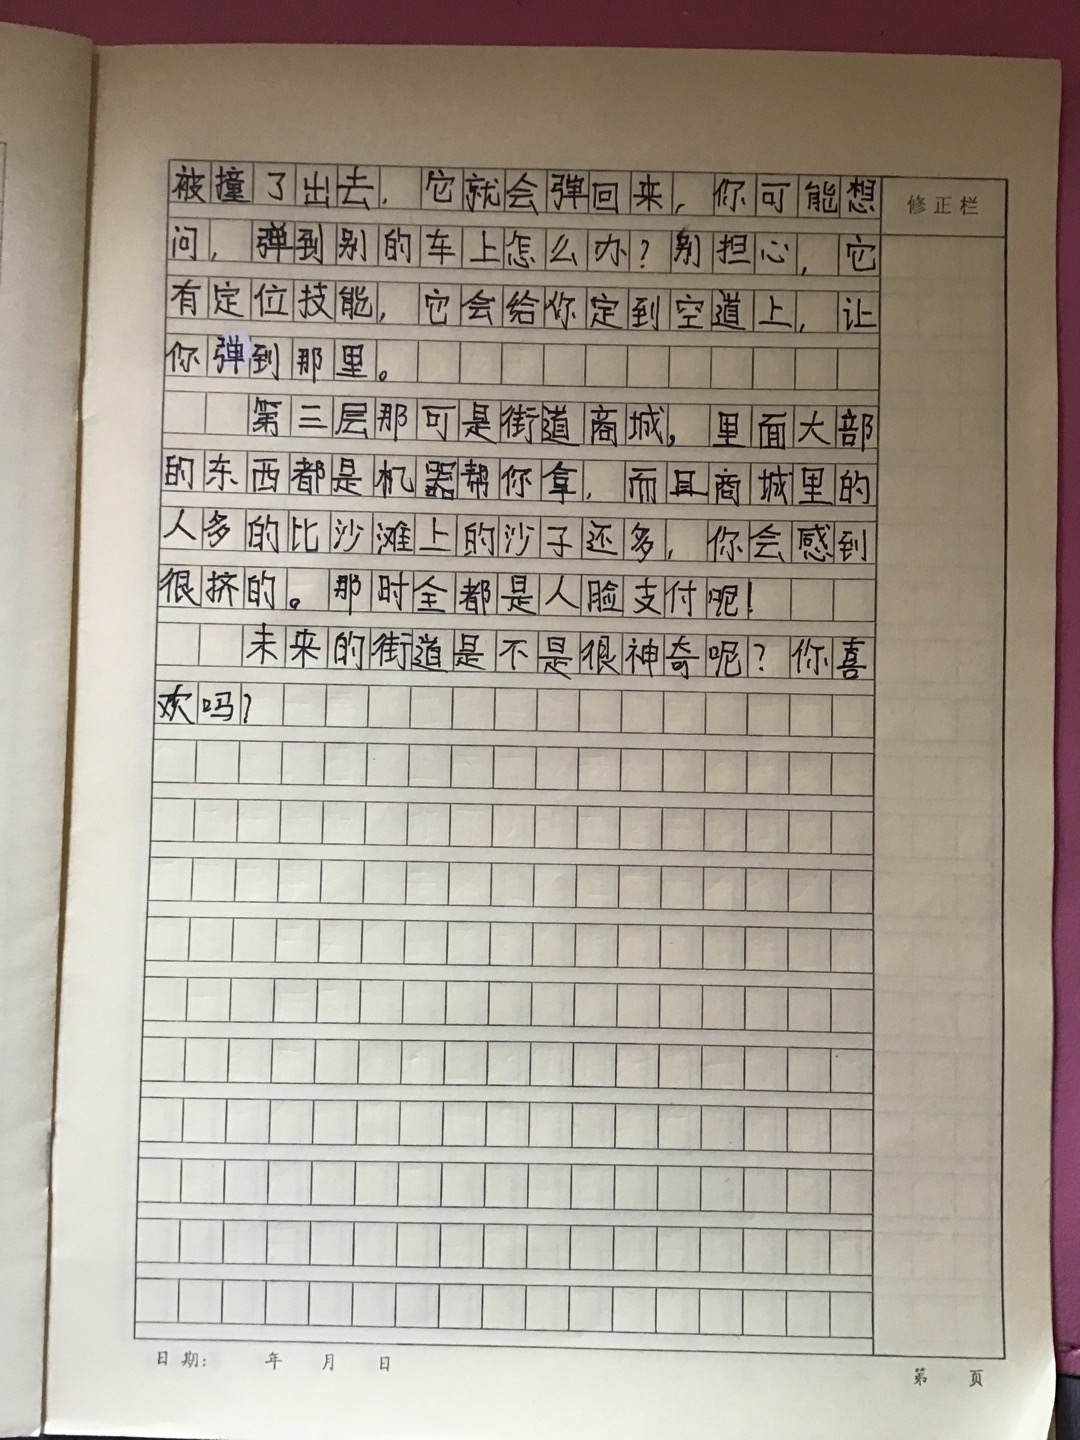 被撞了出去，它就会弹回来，你可能想
修正栏
问，弹到别的车上怎么办？别担心，它
有定位技能，它会给你定到空道上，让
你弹到那里。
第三层那可是街道商城，里面大部
的东西都是机器帮你拿，而且商城里的
人多的比沙滩上的沙子还多，你会感到
很挤的。那时全都是人脸支付呢！
未来的街道是不是很神奇呢？你喜
欢吗？
日期： 年 月 日
第 页